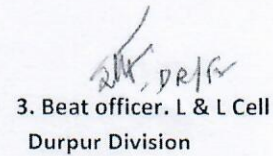 3. Beat officer. L & L Cell
Durpur Division